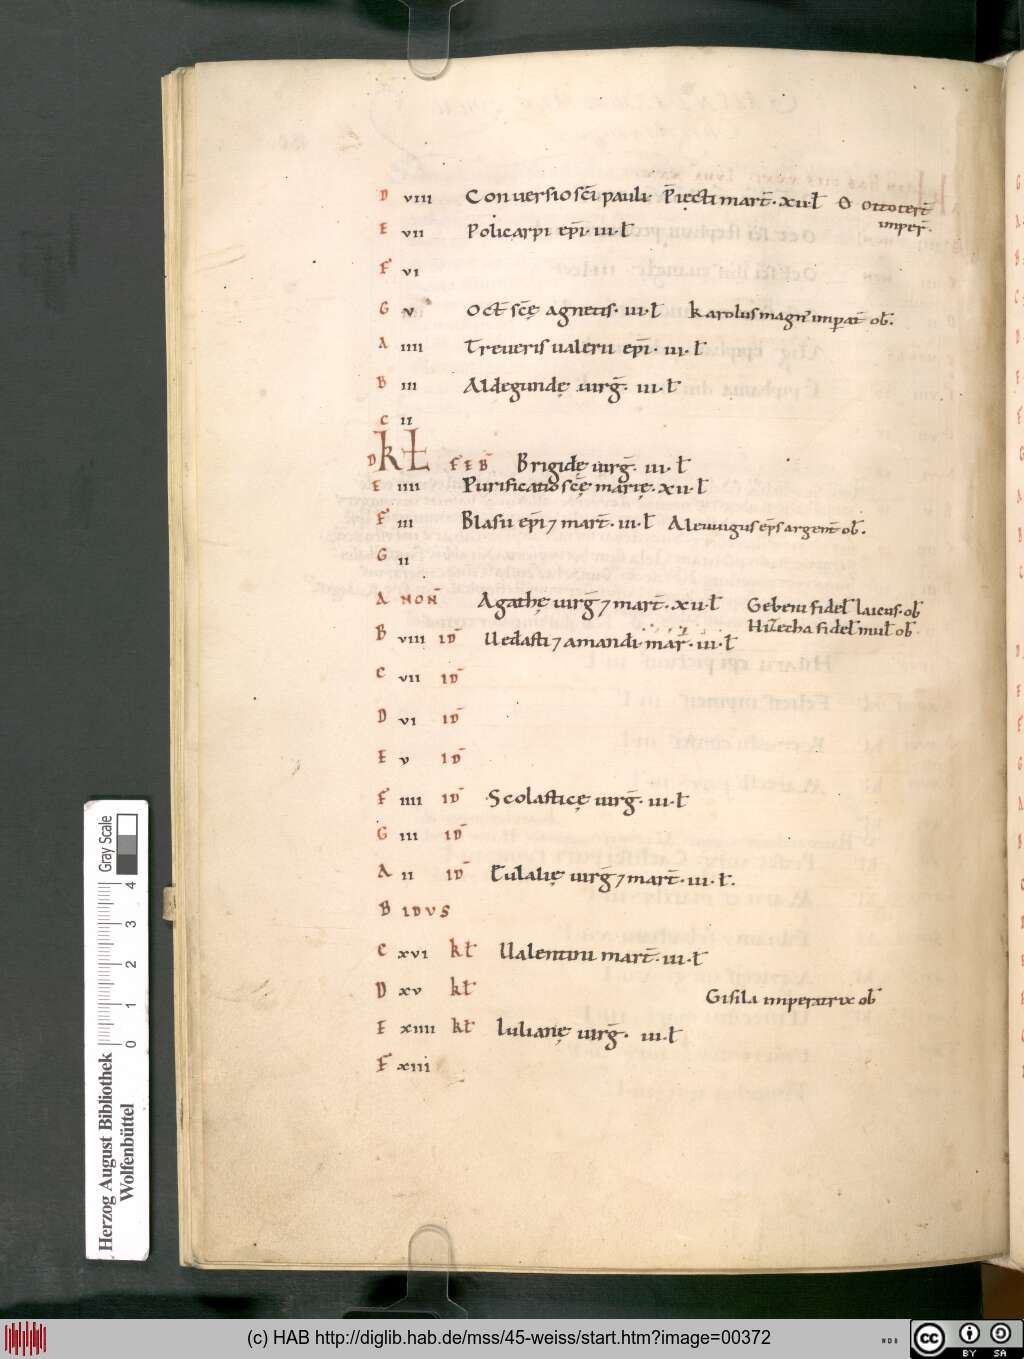 D viii Conuersio sc̄i pauli. P̄iecti mart̄. xii. ł O Otto tert̄
imper̄.
E vii Policarpi ep̄i. iii. ł
F vi
G v Oct̄ sc̄ę agnetis. iii. ł karolus magn' imp̄at̄ ob̄.
A iiii Treueris ualerii ep̄i. iii. ł
B iii Aldegundę uirḡ. iii. ł
C ii
D kł FEB̄ Brigidę uirḡ. iii. ł
E iiii Purificatio sc̄ę marię. xii. ł
F iii Blasii ep̄i ⁊ mart̄. iii. ł Aleuuigus ep̄s argent̄ ob̄.
G ii
A NON̄ Agathę uirḡ ⁊ mart̄. xii. ł Gebeni fidel̄ laicus. ob̄
Hizecha fidel̄ mul̄ ob̄.
B viii ID̄ Uedasti ⁊ amandi mar̄. iii. ł
C vii ID̄
D vi ID̄
E v ID̄
F iiii ID̄ Scolasticę uirḡ. iii. ł
G iii ID̄
A ii ID̄ Eulalię uirḡ ⁊ mart̄. iii. ł.
B IDVS
C xvi kł Ualentini mart̄. iii. ł
D xv kł Gisila imperatrix ob̄
E xiiii kł Iulianę uirḡ. iii. ł
F xiii
Gray Scale
0 1 2 3 4
Herzog August Bibliothek
Wolfenbüttel
(c) HAB http://diglib.hab.de/mss/45-weiss/start.htm?image=00372
WDB
cc BY SA